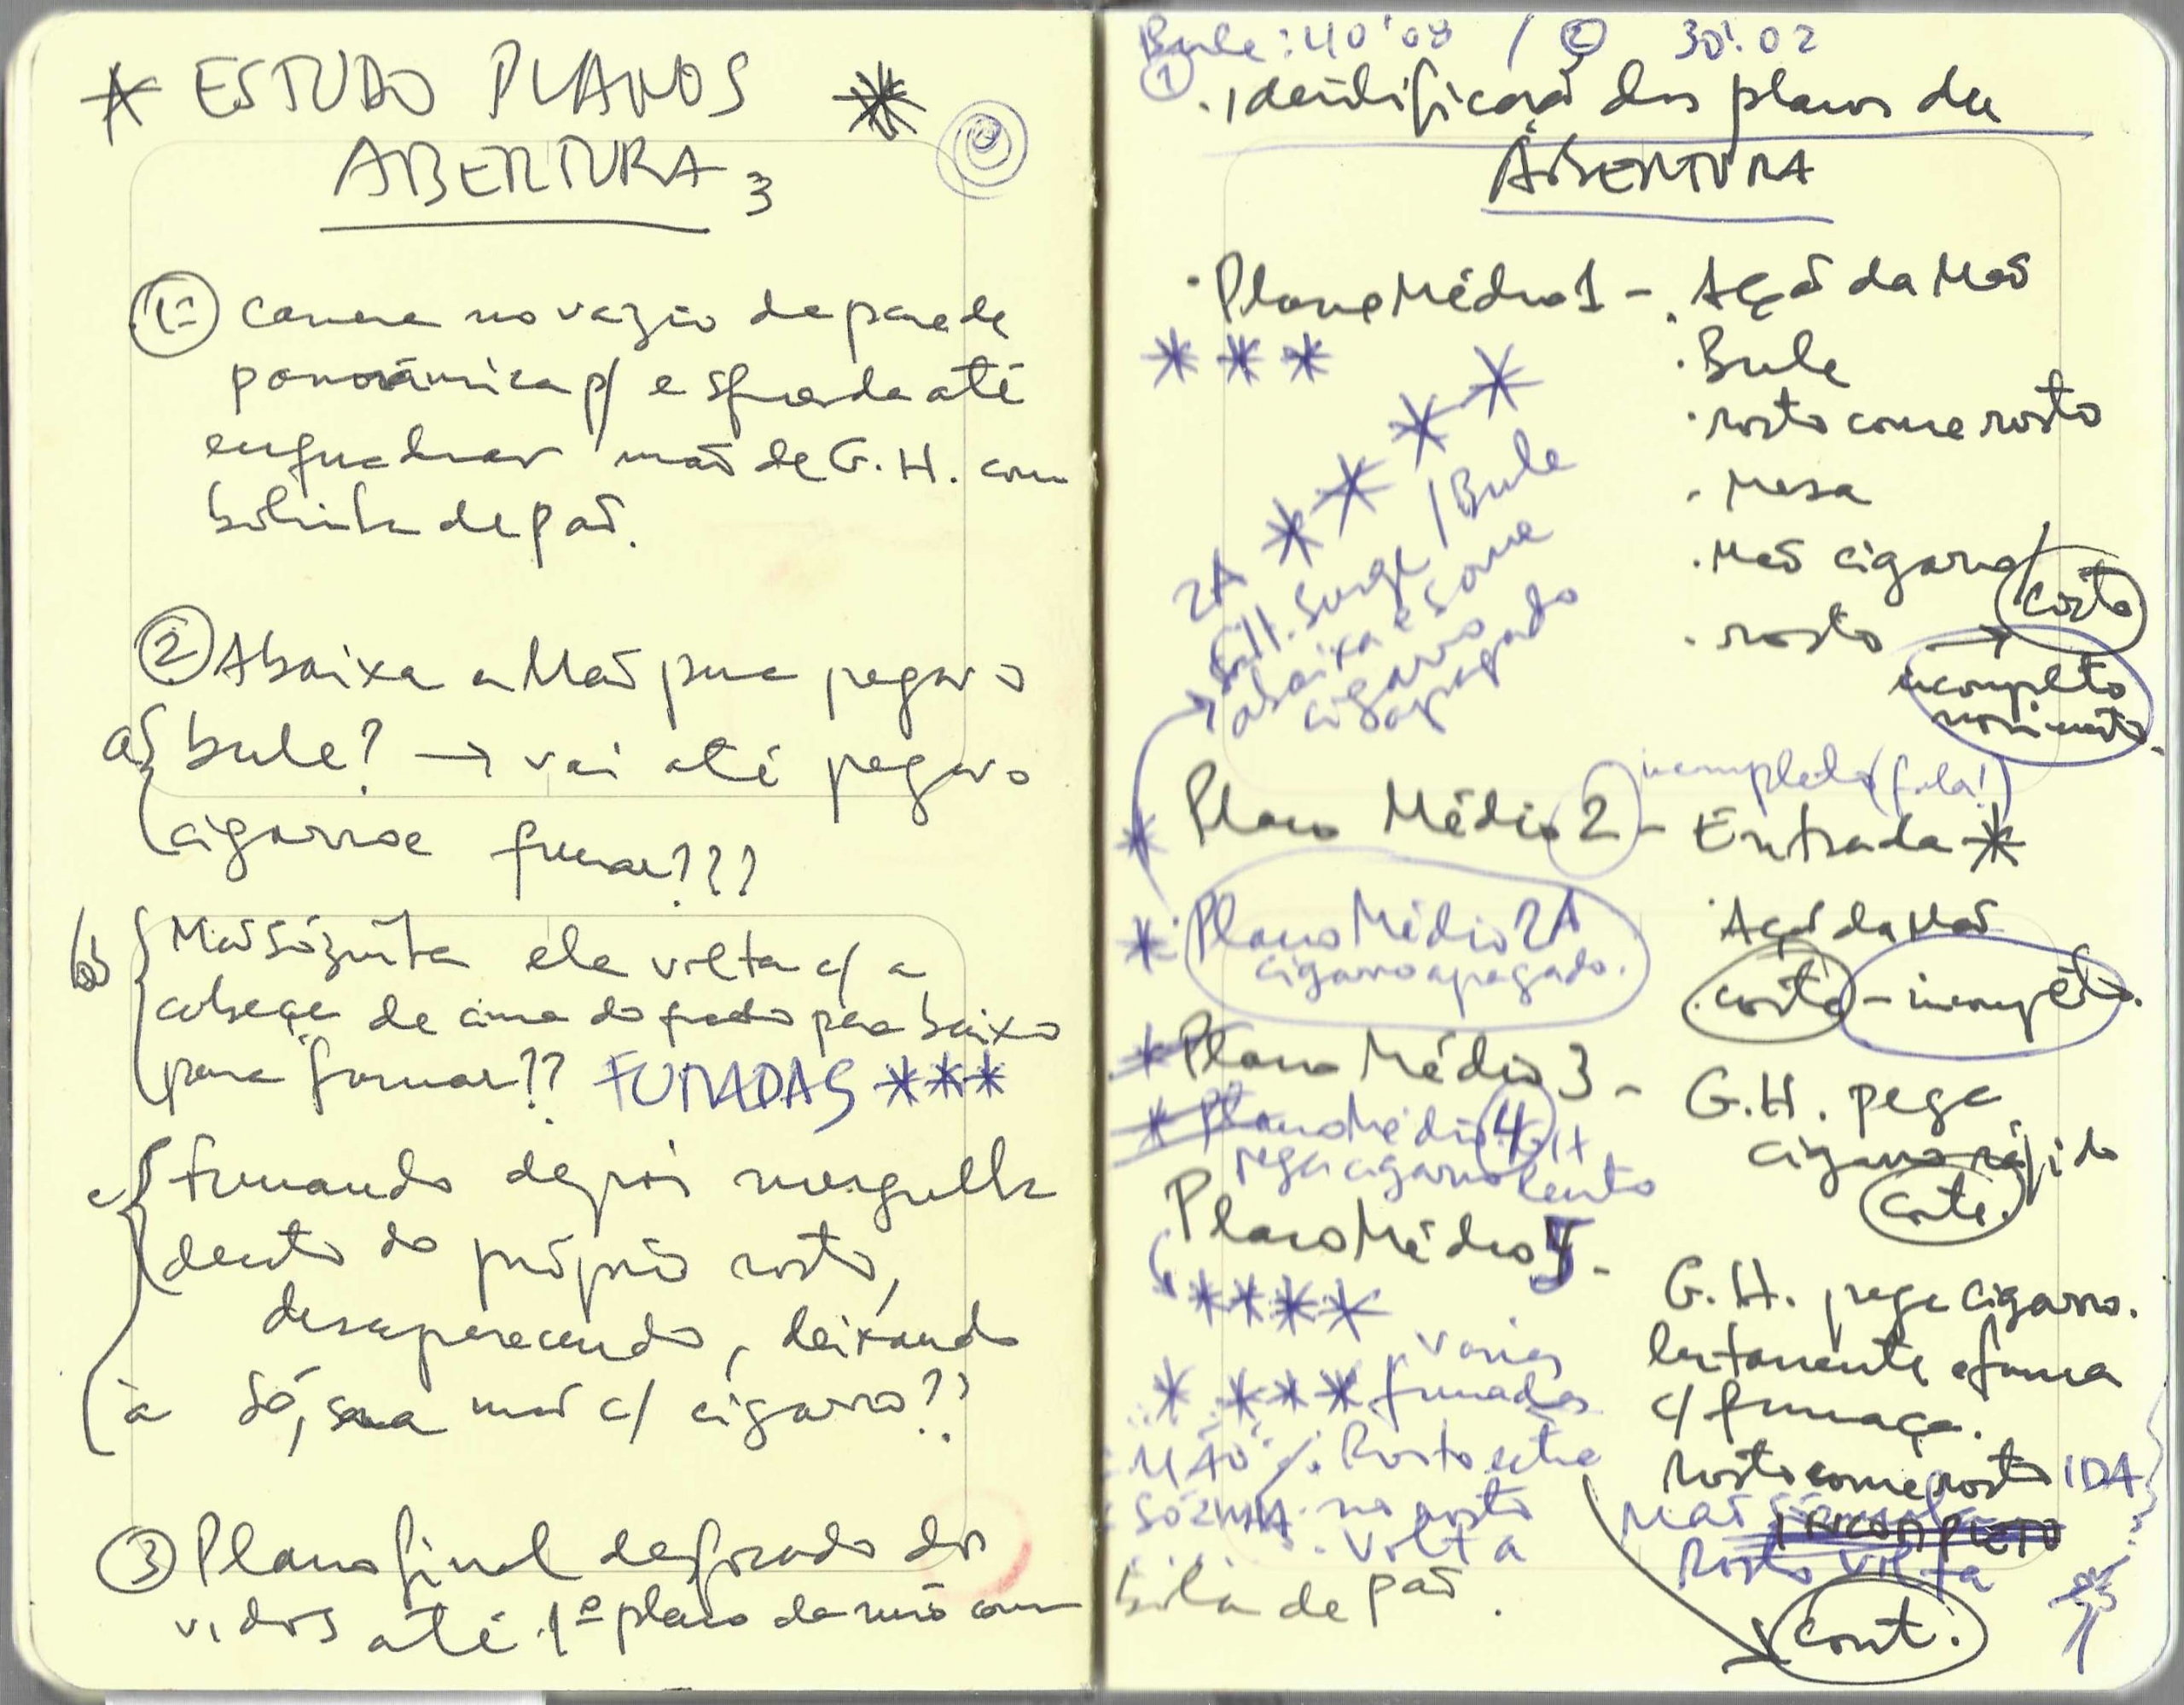 * ESTUDO PLANOS *
ABERTURA 3
1º camera no vazio da parede
panorâmica p/ esquerda até
enquadrar mão de G.H. com
bolinha de pão.
2 Abaixa a Mão para pegar o
a) bule? → vai até pegar o
cigarro e fumar???
b) Mão sózinha ele volta c/ a
cabeça de cima do quadro para baixo
para fumar?? FUMADAS ***
c) fumando depois mergulha
dentro do próprio rosto,
desaparecendo, deixando
à só, sua mão c/ cigarro??
3 Plano final desfocado dos
vidros até 1º plano da mão com
Bule: 40'08 / 2 30'.02
1 . identificação dos planos da
ABERTURA
. Plano Médio 1 - . Ação da Mão
* * *
. Bule
. rosto come rosto
. Mesa
. Mão cigarro / corte
. rosto →
incompleto
movimento.
2A * * * * *
G.H. surge / Bule
abaixa e some
cigarro
apagado
incompleto (fala!)
* Plano Médio 2 - Entrada *
. Ação da Mão
. corte - incompleto.
* Plano Médio 2A
cigarro apagado.
* Plano Médio 3 - G.H. pega
cigarro rápido
corte.
* Plano Médio 4 G.H
pega cigarro lento
Plano Médio 5 - G.H. pega cigarro.
lentamente e fuma
c/ fumaça.
Rosto come rosto IDA
* * * *
* * * * varias
fumadas
MÃO Rosto entra
SÓZINHA no rosto
. volta
Mão Sózinha
INCOMPLETO
Rosto volta
cont.
bola de pão.